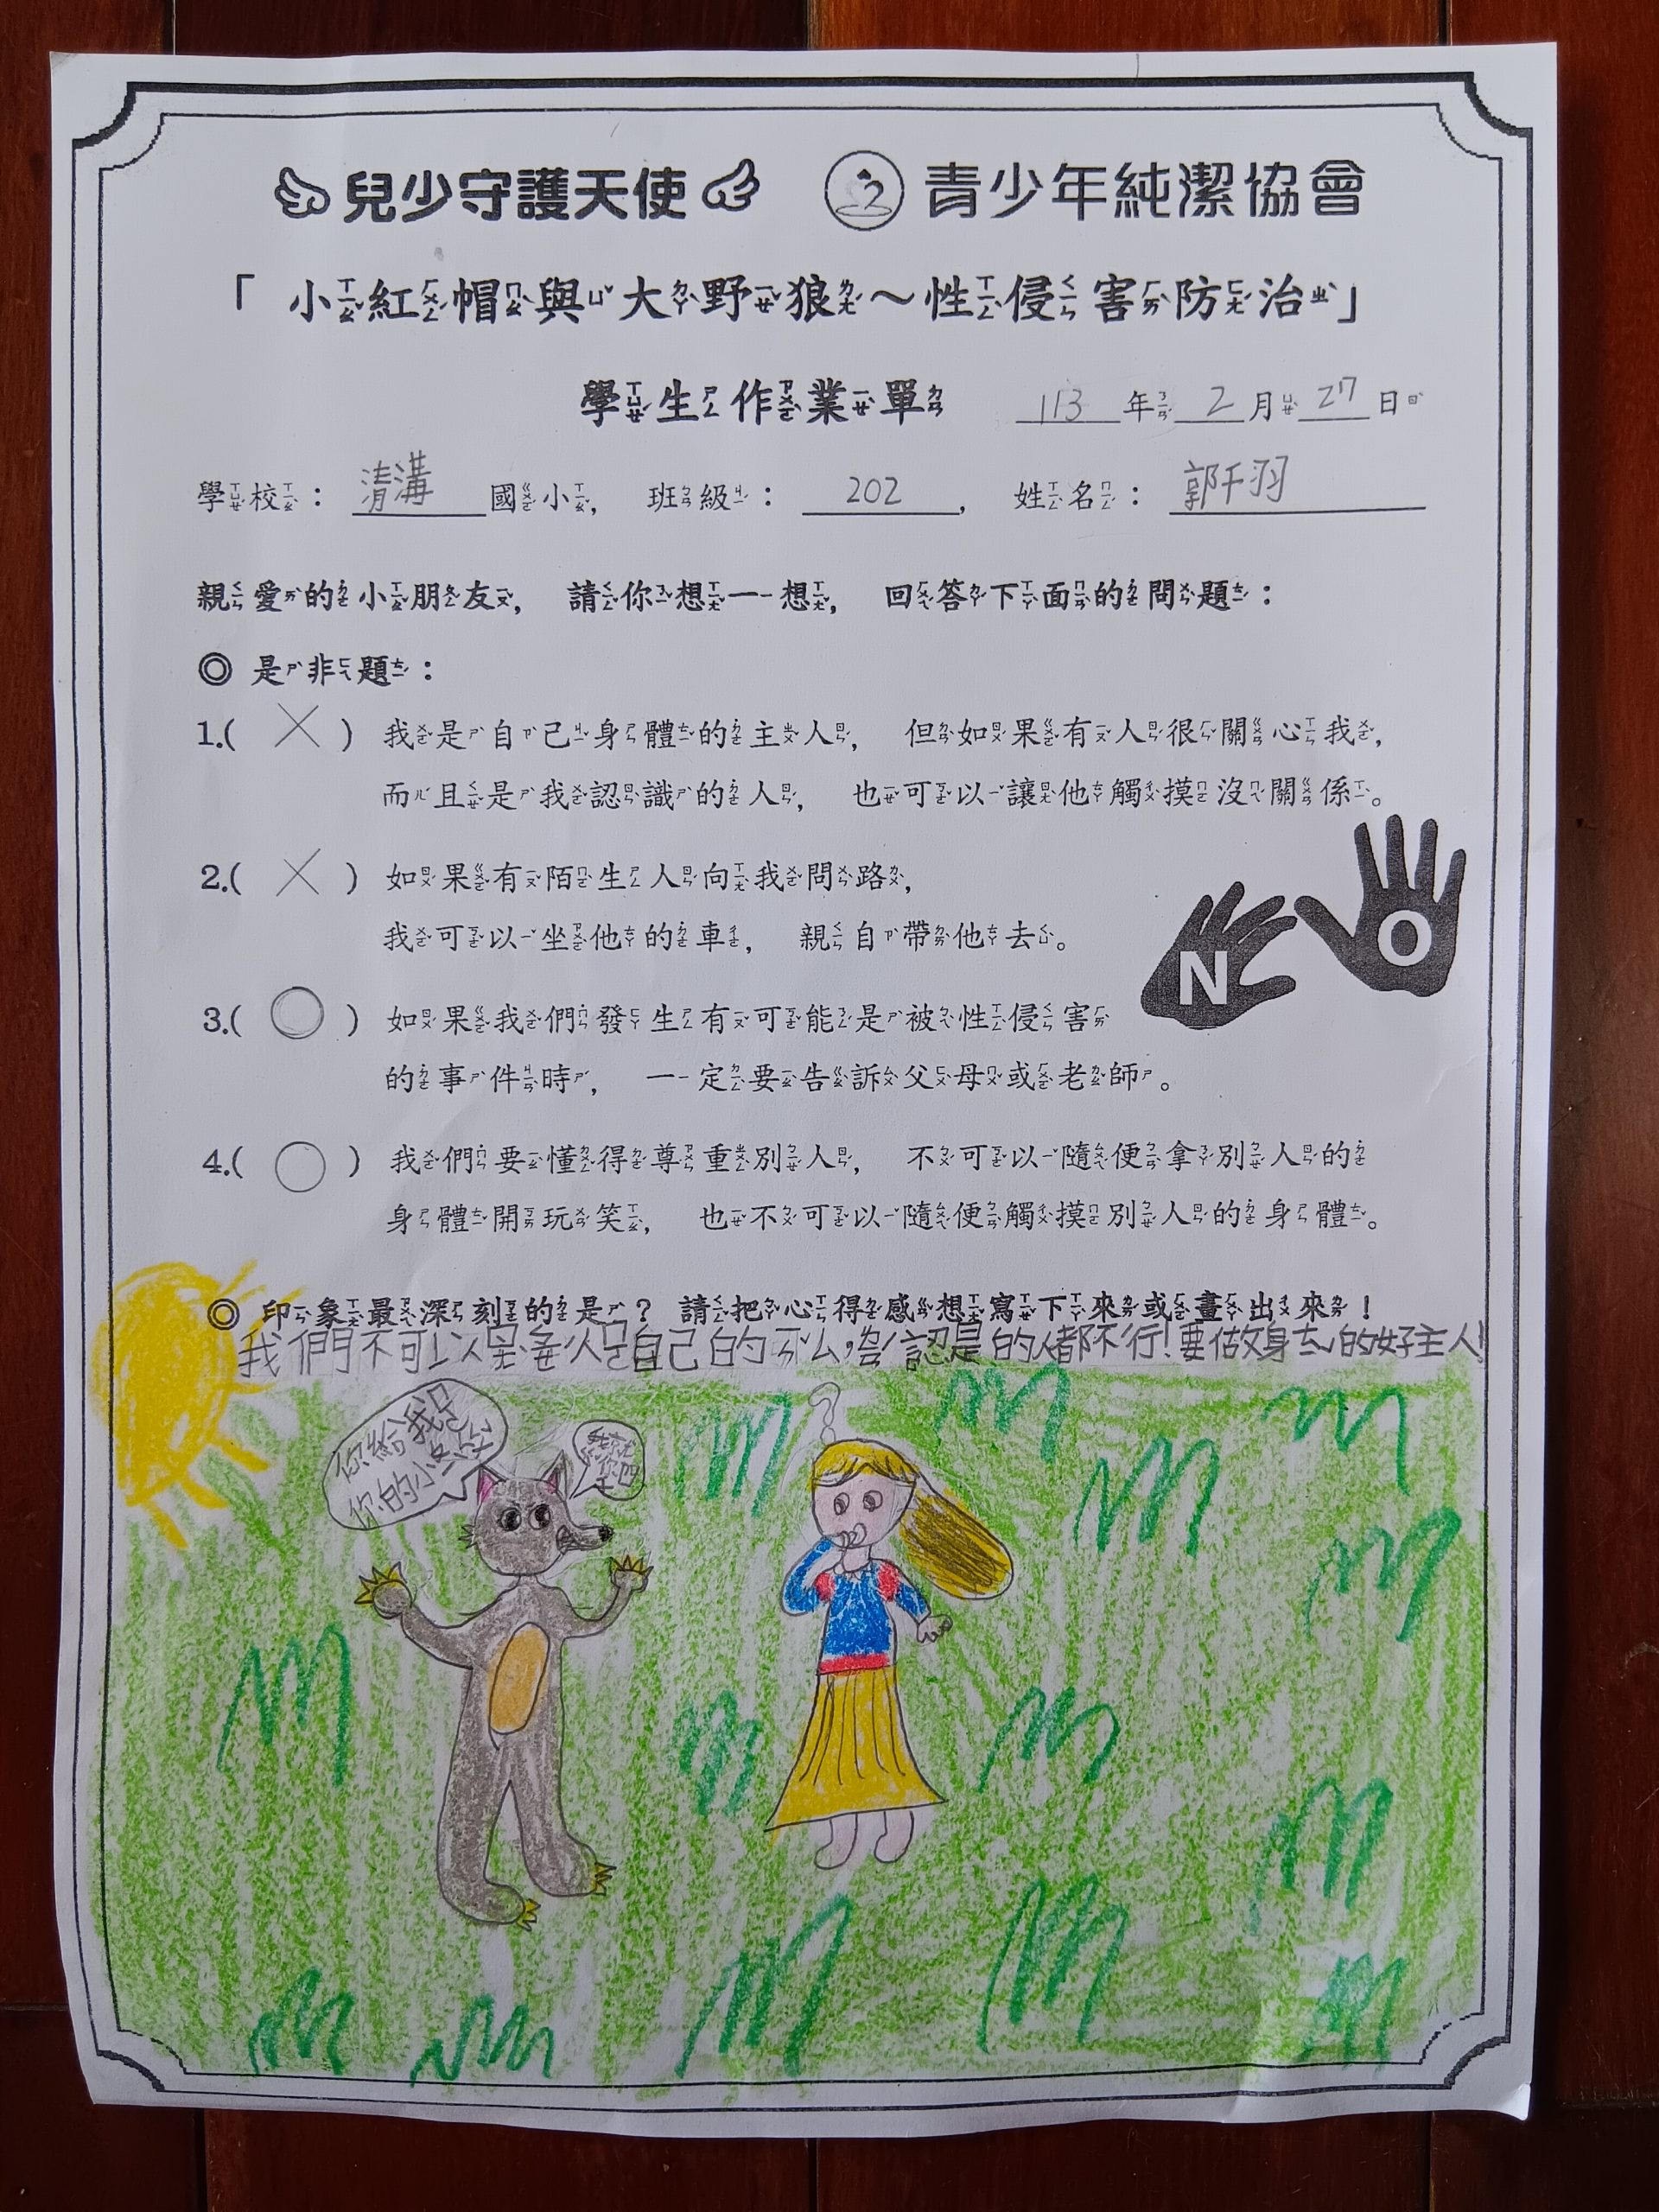 兒少守護天使 青少年純潔協會
「小紅帽與大野狼~性侵害防治」
學生作業單 113年2月27日
學校:清溝國小, 班級:202, 姓名:郭千羽
親愛的小朋友, 請你想一想, 回答下面的問題:
◎ 是非題:
1.( X ) 我是自己身體的主人, 但如果有人很關心我,
而且是我認識的人, 也可以讓他觸摸沒關係。
2.( X ) 如果有陌生人向我問路,
我可以坐他的車, 親自帶他去。
N O
3.( ○ ) 如果我們發生有可能是被性侵害
的事件時, 一定要告訴父母或老師。
4.( ○ ) 我們要懂得尊重別人, 不可以隨便拿別人的
身體開玩笑, 也不可以隨便觸摸別人的身體。
◎ 印象最深刻的是? 請把心得感想寫下來或畫出來!
我們不可以 人 自己的 認是的人都不行!要做身ㄊㄧˇ的好主人!
你給我
你的小